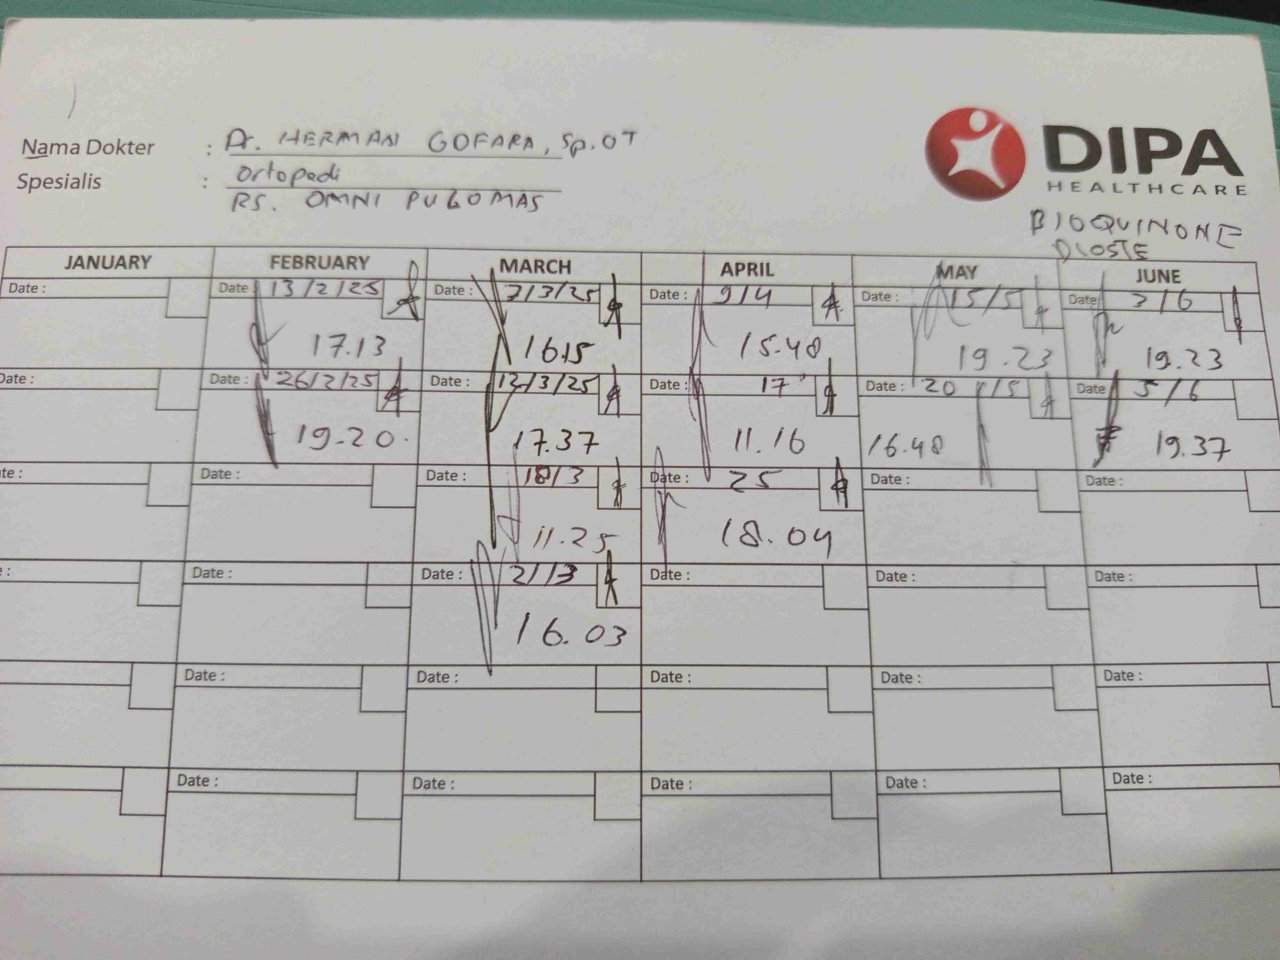 Nama Dokter : Dr. HERMAN GOFARA, Sp.OT
Spesialis : Ortopedi
RS. OMNI PULOMAS
DIPA
HEALTHCARE
BIOQUINONE
DIOSTE
JANUARY FEBRUARY MARCH APRIL MAY JUNE
Date : Date : 13/2/25 Date : 7/3/25 Date : 9/4 Date : 15/5 Date 3/6
17.13 16.15 15.48 19.23 19.23
Date : Date : 26/2/25 Date : 12/3/25 Date : 17 Date : 20/5 Date 5/6
19.20. 17.37 11.16 16.48 19.37
te : Date : Date : 18/3 Date : 25 Date : Date :
11.25 18.04
: Date : Date : 21/3 Date : Date : Date :
16.03
Date : Date : Date : Date : Date :
Date : Date : Date : Date : Date :